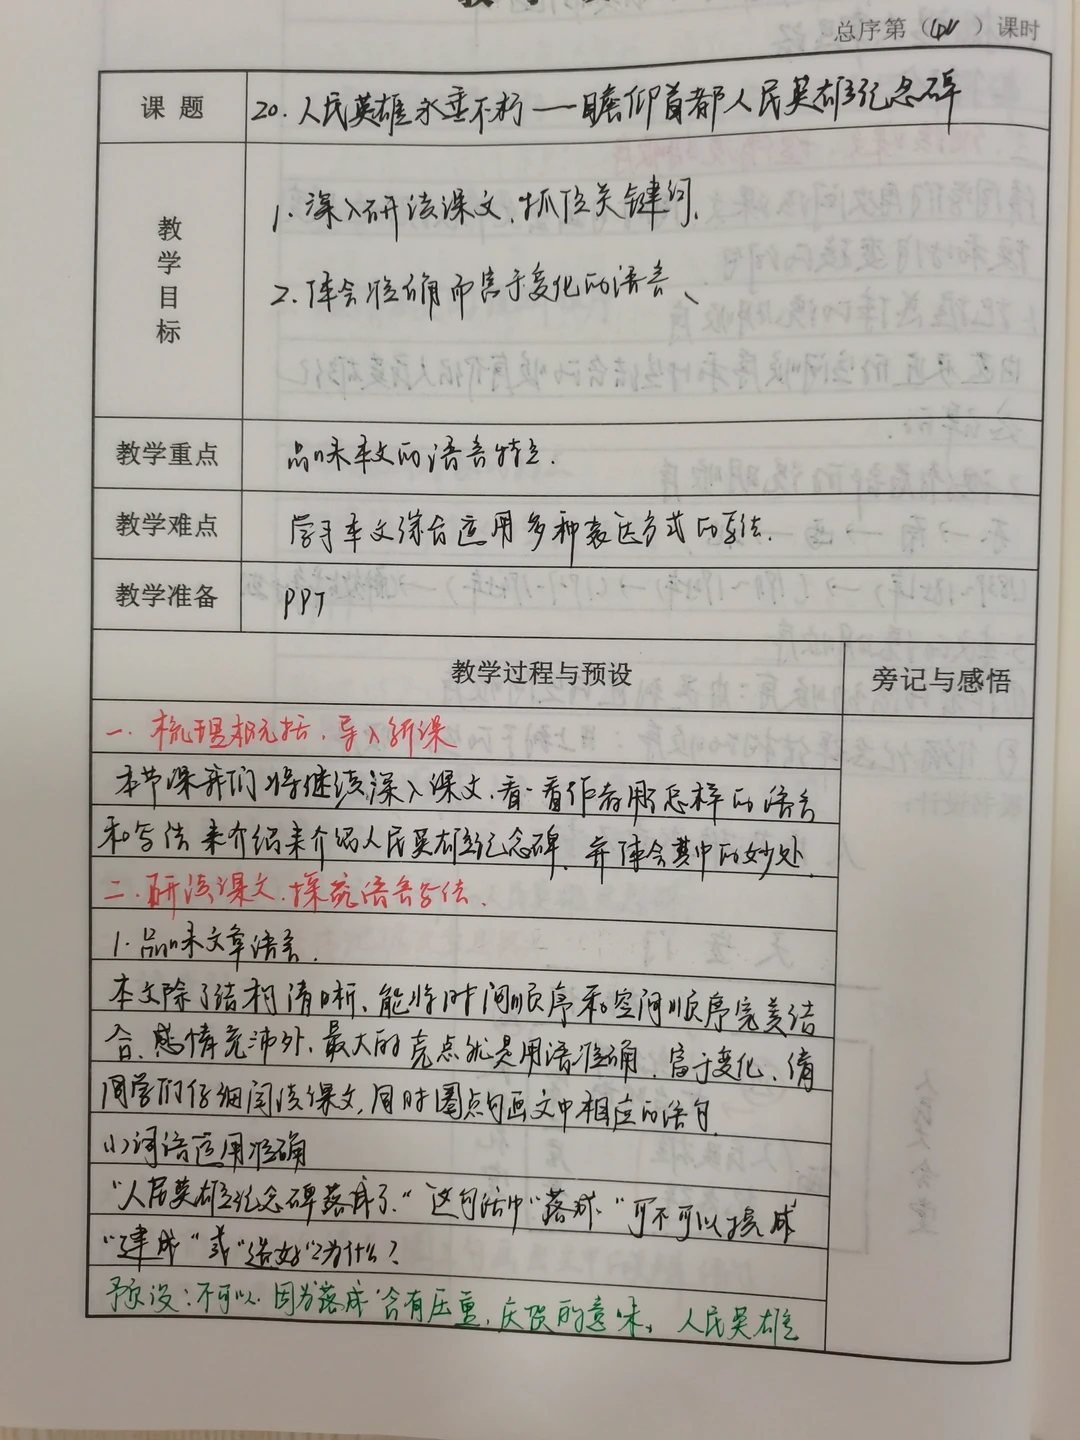 总序第（41）课时
课 题
20.人民英雄永垂不朽——瞻仰首都人民英雄纪念碑
教学目标
1.深入研读课文,抓住关键句,
2.体会准确而富于变化的语言、
教学重点
品味本文的语言特点.
教学难点
学习本文综合运用多种表达方式的写法.
教学准备
PPT
教学过程与预设
旁记与感悟
一、梳理概括,导入新课
本节课我们将继续深入课文,看一看作者用怎样的语言
和写法来介绍来介绍人民英雄纪念碑,并体会其中的妙处.
二、研读课文,探究语言写法.
1.品味文章语言.
本文除了结构清晰、能将时间顺序和空间顺序完美结
合、感情充沛外,最大的亮点就是用语准确、富于变化、请
同学们仔细阅读课文,同时圈点勾画文中相应的语句.
(1)词语运用准确
“人民英雄纪念碑落成了.”这句话中“落成”可不可以换成
“建成”或“造好”?为什么?
预设:不可以.因为“落成”含有庄重,庆贺的意味,人民英雄